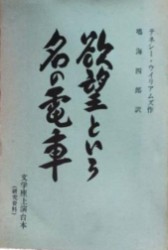 テネシー・ウイリアムズ作
鳴海四郎訳
欲望という
名の電車
文学座上演台本
(研究資料)